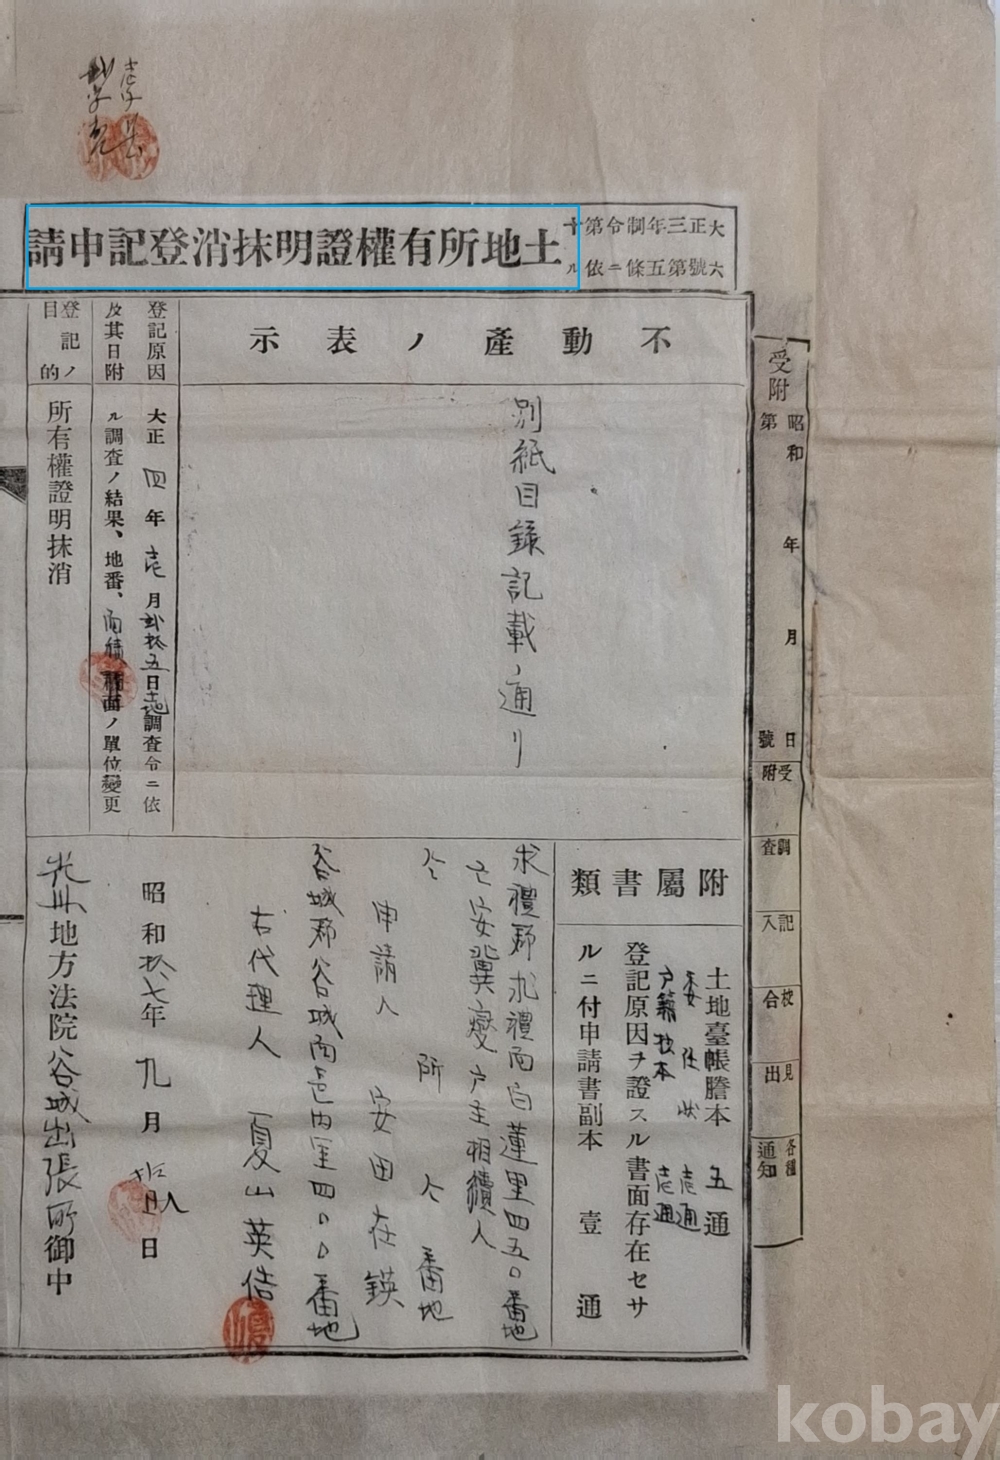 大正三年制令第十
六號第五條ニ依ル
土地所有權證明抹消登記申請
受附
昭和 年 月 日
第 號
受附
調査
記入
校合
見出
各種通知
不動產ノ表示
別紙目錄記載ノ通リ
登記原因
及其日附
大正四年壱月貳拾五日土地調査令ニ依
ル調査ノ結果、地番、面積ノ單位變更
登記ノ目的
所有權證明抹消
附屬書類
土地臺帳謄本 五通
委任狀 壱通
戶籍抄本 壱通
登記原因ヲ證スル書面存在セサ
ルニ付申請書副本 壹通
求禮郡求禮面白蓮里四五〇番地
亡安冀燮戶主相續人
仝所仝番地
申請人 安田在鍈
谷城郡谷城面邑內里四〇〇番地
右代理人 夏山英
昭和拾七年九月 日
光州地方法院谷城出張所御中
kobay